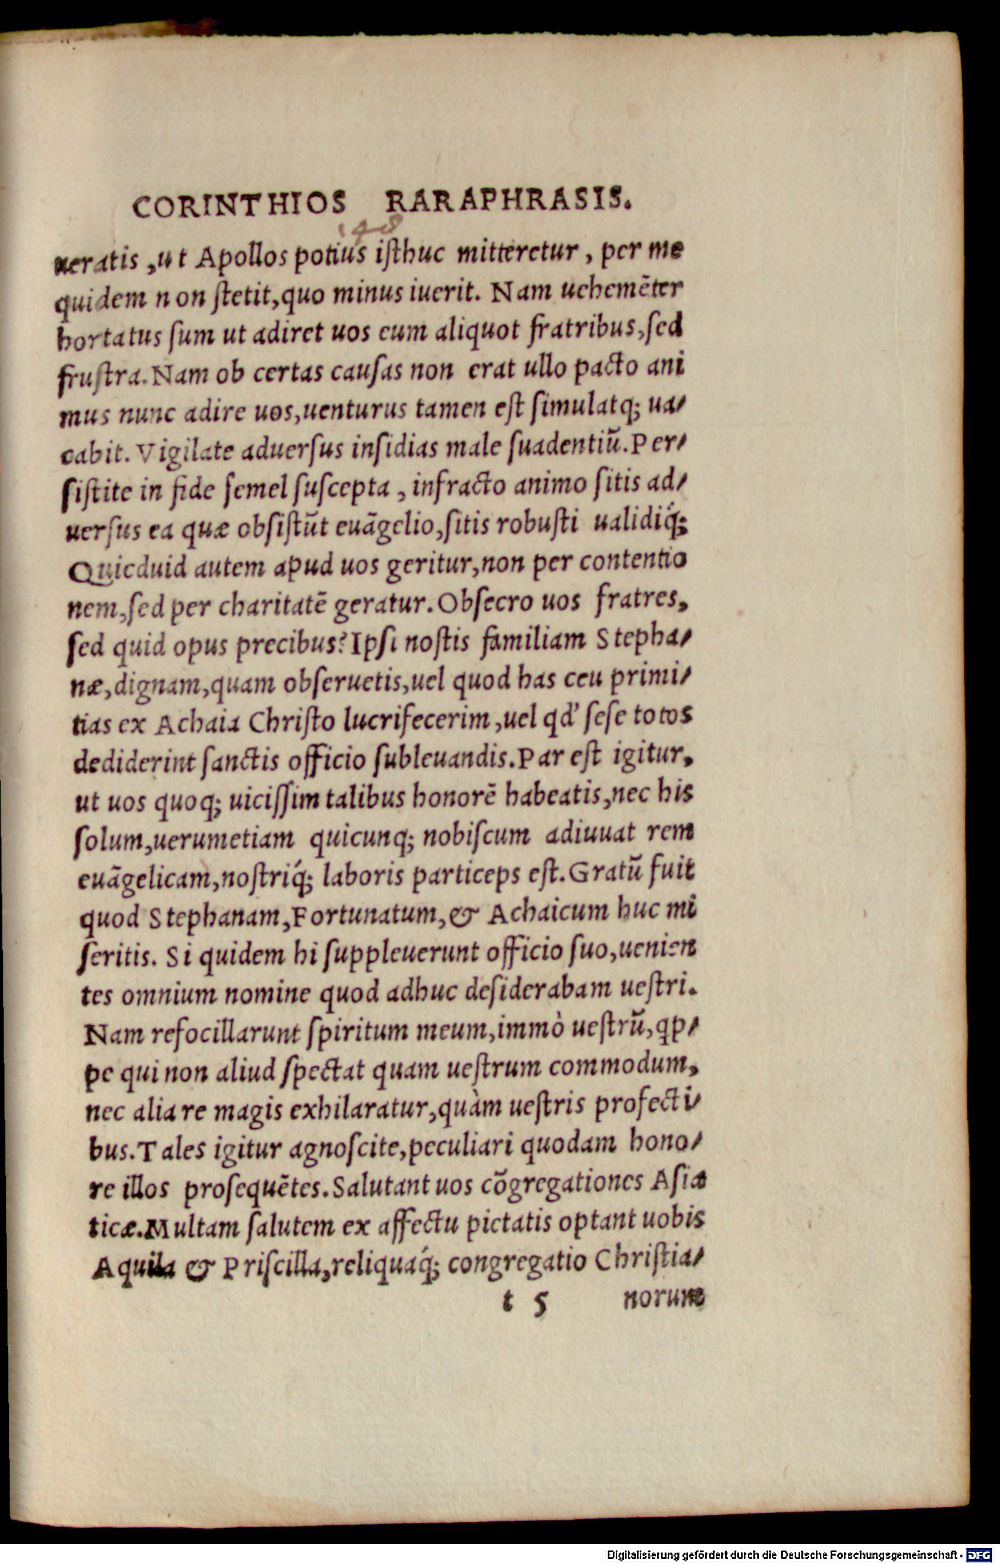 CORINTHIOS RARAPHRASIS.
148
ueratis, ut Apollos potius iſthuc mitteretur, per me
quidem non ſtetit, quo minus iuerit. Nam uehemēter
hortatus ſum ut adiret uos cum aliquot fratribus, ſed
fruſtra. Nam ob certas cauſas non erat ullo pacto ani
mus nunc adire uos, uenturus tamen eſt ſimulatq; ua/
cabit. Vigilate aduerſus inſidias male ſuadentiū. Per/
ſiſtite in fide ſemel ſuscepta, infracto animo ſitis ad/
uerſus ea quæ obſiſtūt euāgelio, ſitis robuſti ualidiq́;
Quicduid autem apud uos geritur, non per contentio
nem, ſed per charitatē geratur. Obſecro uos fratres,
ſed quid opus precibus? Ipſi noſtis familiam Stepha/
næ, dignam, quam obſeruetis, uel quod has ceu primi/
tias ex Achaia Chriſto lucrifecerim, uel qd' ſeſe totos
dediderint ſanctis officio ſubleuandis. Par eſt igitur,
ut uos quoq; uiciſſim talibus honorē habeatis, nec his
ſolum, uerumetiam quicunq; nobiſcum adiuuat rem
euāgelicam, noſtriq́; laboris particeps eſt. Gratū fuit
quod Stephanam, Fortunatum, & Achaicum huc mi
ſeritis. Si quidem hi ſuppleuerunt officio ſuo, uenien
tes omnium nomine quod adhuc deſiderabam ueſtri.
Nam refocillarunt ſpiritum meum, immò ueſtrū, qp/
pe qui non aliud ſpectat quam ueſtrum commodum,
nec alia re magis exhilaratur, quàm ueſtris profecti/
bus. Tales igitur agnoſcite, peculiari quodam hono/
re illos proſequētes. Salutant uos cōgregationes Aſia
ticæ. Multam ſalutem ex affectu pietatis optant uobis
Aquila & Priſcilla, reliquaq́; congregatio Chriſtia/
t 5 norum
Digitalisierung gefördert durch die Deutsche Forschungsgemeinschaft - DFG